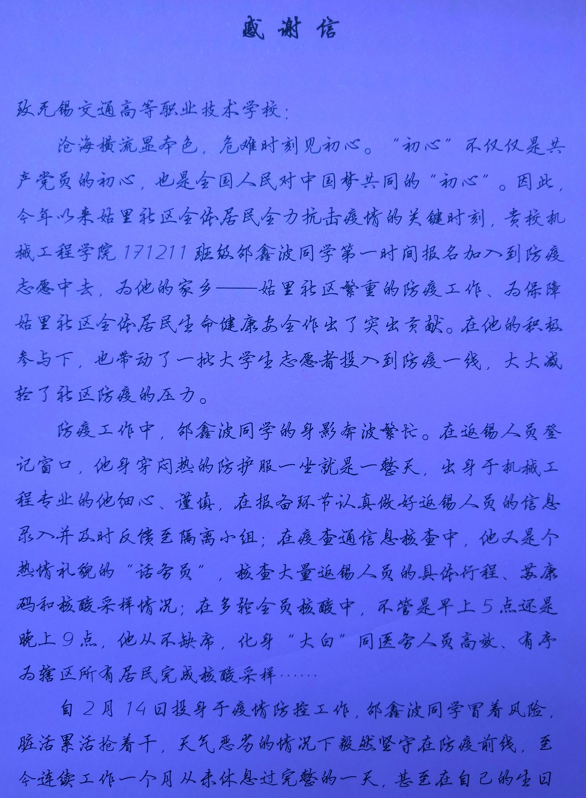 感谢信
致无锡交通高等职业技术学校：
沧海横流显本色，危难时刻见初心。“初心”不仅仅是共
产党员的初心，也是全国人民对中国梦共同的“初心”。因此，
今年以来姑里社区全体居民全力抗击疫情的关键时刻，贵校机
械工程学院171211班级邰鑫波同学第一时间报名加入到防疫
志愿中去，为他的家乡——姑里社区繁重的防疫工作、为保障
姑里社区全体居民生命健康安全作出了突出贡献。在他的积极
参与下，也带动了一批大学生志愿者投入到防疫一线，大大减
轻了社区防疫的压力。
防疫工作中，邰鑫波同学的身影奔波繁忙。在返锡人员登
记窗口，他身穿闷热的防护服一坐就是一整天，出身于机械工
程专业的他细心、谨慎，在报备环节认真做好返锡人员的信息
录入并及时反馈至隔离小组；在疫查通信息核查中，他又是个
热情礼貌的“话务员”，核查大量返锡人员的具体行程、苏康
码和核酸采样情况；在多轮全员核酸中，不管是早上5点还是
晚上9点，他从不缺席，化身“大白”同医务人员高效、有序
为辖区所有居民完成核酸采样……
自2月14日投身于疫情防控工作，邰鑫波同学冒着风险，
脏活累活抢着干，天气恶劣的情况下毅然坚守在防疫前线，至
今连续工作一个月从未休息过完整的一天，甚至在自己的生日